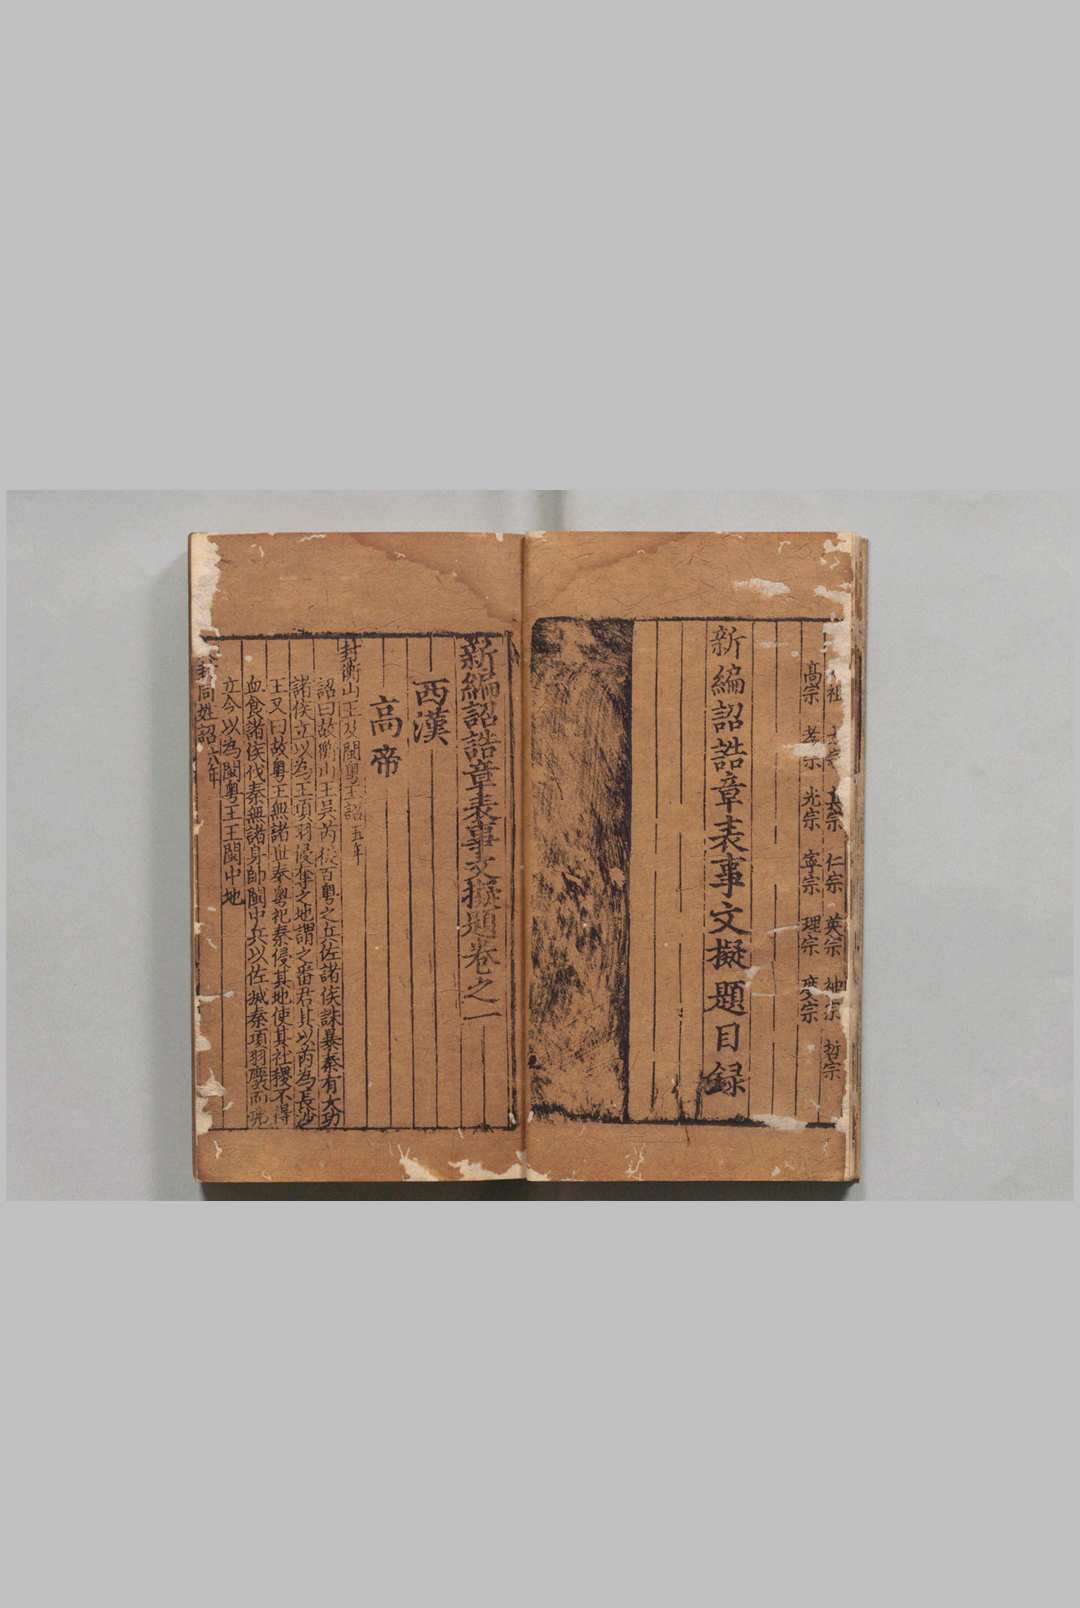 祖 宗 真宗 仁宗 英宗 神宗 哲宗
高宗 孝宗 光宗 寧宗 理宗 度宗
新編詔誥章表事文擬題目録
新編詔誥章表事文擬題卷之一
西漢
高帝
封衡山王及閩粵王詔五年
詔曰故衡山王吳芮從百粵之兵佐諸侯誅暴秦有大功
諸侯立以為王項羽侵奪之地謂之番君其以芮為長沙
王又曰故粵王無諸世奉粵祀秦侵其地使其社稷不得
血食諸侯伐秦無諸身帥閩中兵以佐滅秦項羽廢而弗
立今以為閩粵王王閩中地
封同姓詔六年